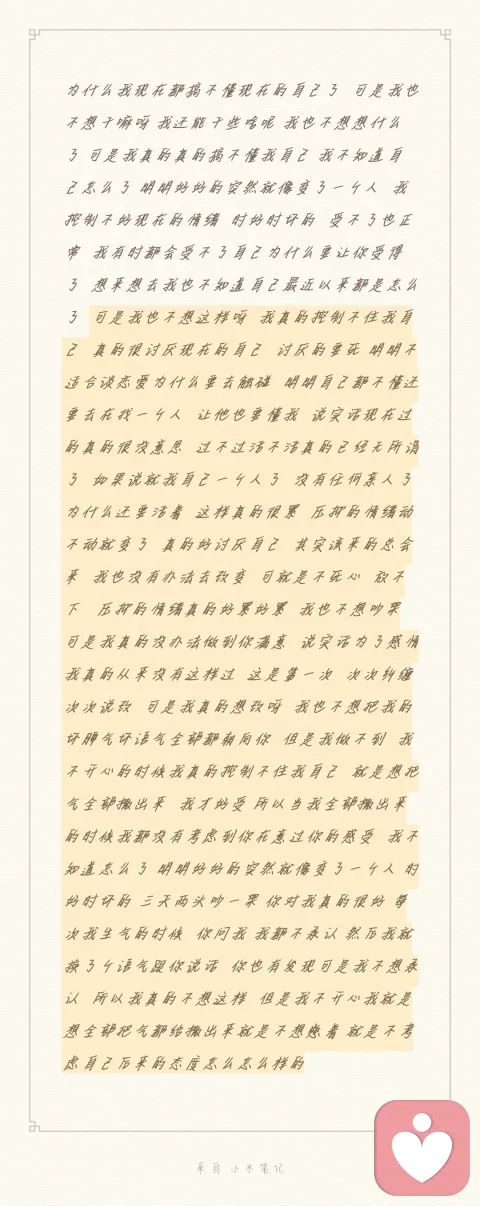 为什么我现在都搞不懂现在的自己了 可是我也
不想干嘛呀 我还能干些啥呢 我也不想想什么
了 可是我真的真的搞不懂我自己 我不知道自
己怎么了 明明好好的突然就像变了一个人 我
控制不好现在的情绪 时好时坏的 受不了也正
常 我有时都会受不了自己为什么要让你受得
了 想来想去我也不知道自己最近以来都是怎么
了 可是我也不想这样呀 我真的控制不住我自
己 真的很讨厌现在的自己 讨厌的要死 明明不
适合谈恋爱为什么要去触碰 明明自己都不懂还
要去在找一个人 让他也要懂我 说实话现在过
的真的很没意思 过不过活不活真的已经无所谓
了 如果说就我自己一个人了 没有任何亲人了
为什么还要活着 这样真的很累 压抑的情绪动
不动就变了 真的好讨厌自己 其实该来的总会
来 我也没有办法去改变 可就是不死心 放不
下 压抑的情绪真的好累好累 我也不想吵架
可是我真的没办法做到你满意 说实话为了感情
我真的从来没有这样过 这是第一次 次次纠缠
次次说改 可是我真的想改呀 我也不想把我的
坏脾气坏语气全部都朝向你 但是我做不到 我
不开心的时候我真的控制不住我自己 就是想把
气全部撒出来 我才好受 所以当我全部撒出来
的时候我都没有考虑到你在意过你的感受 我不
知道怎么了 明明好好的突然就像变了一个人 时
好时坏的 三天两头吵一架 你对我真的很好 每
次我生气的时候 你问我 我都不承认 然后我就
换了个语气跟你说话 你也有发现可是我不想承
认 所以我真的不想这样 但是我不开心我就是
想全部把气都给撒出来就是不想憋着 就是不考
虑自己后来的态度怎么怎么样的
来自小米笔记